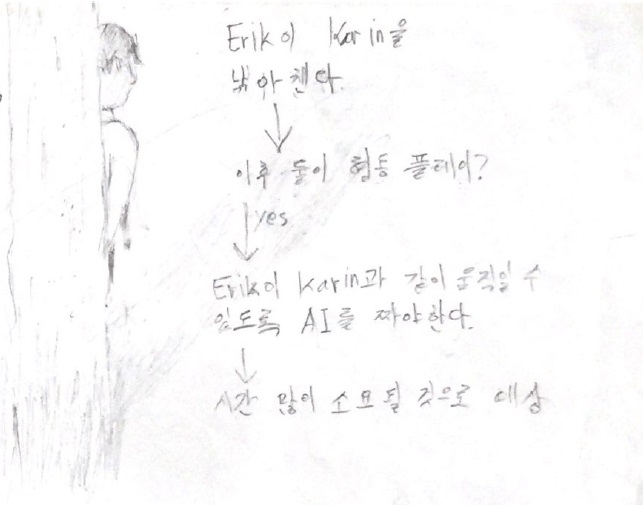 Erik이 Karin을
낚아챈다.
이후 둘이 협동 플레이?
yes
Erik이 Karin과 같이 움직일 수
있도록 AI를 짜야한다.
시간 많이 소요될 것으로 예상